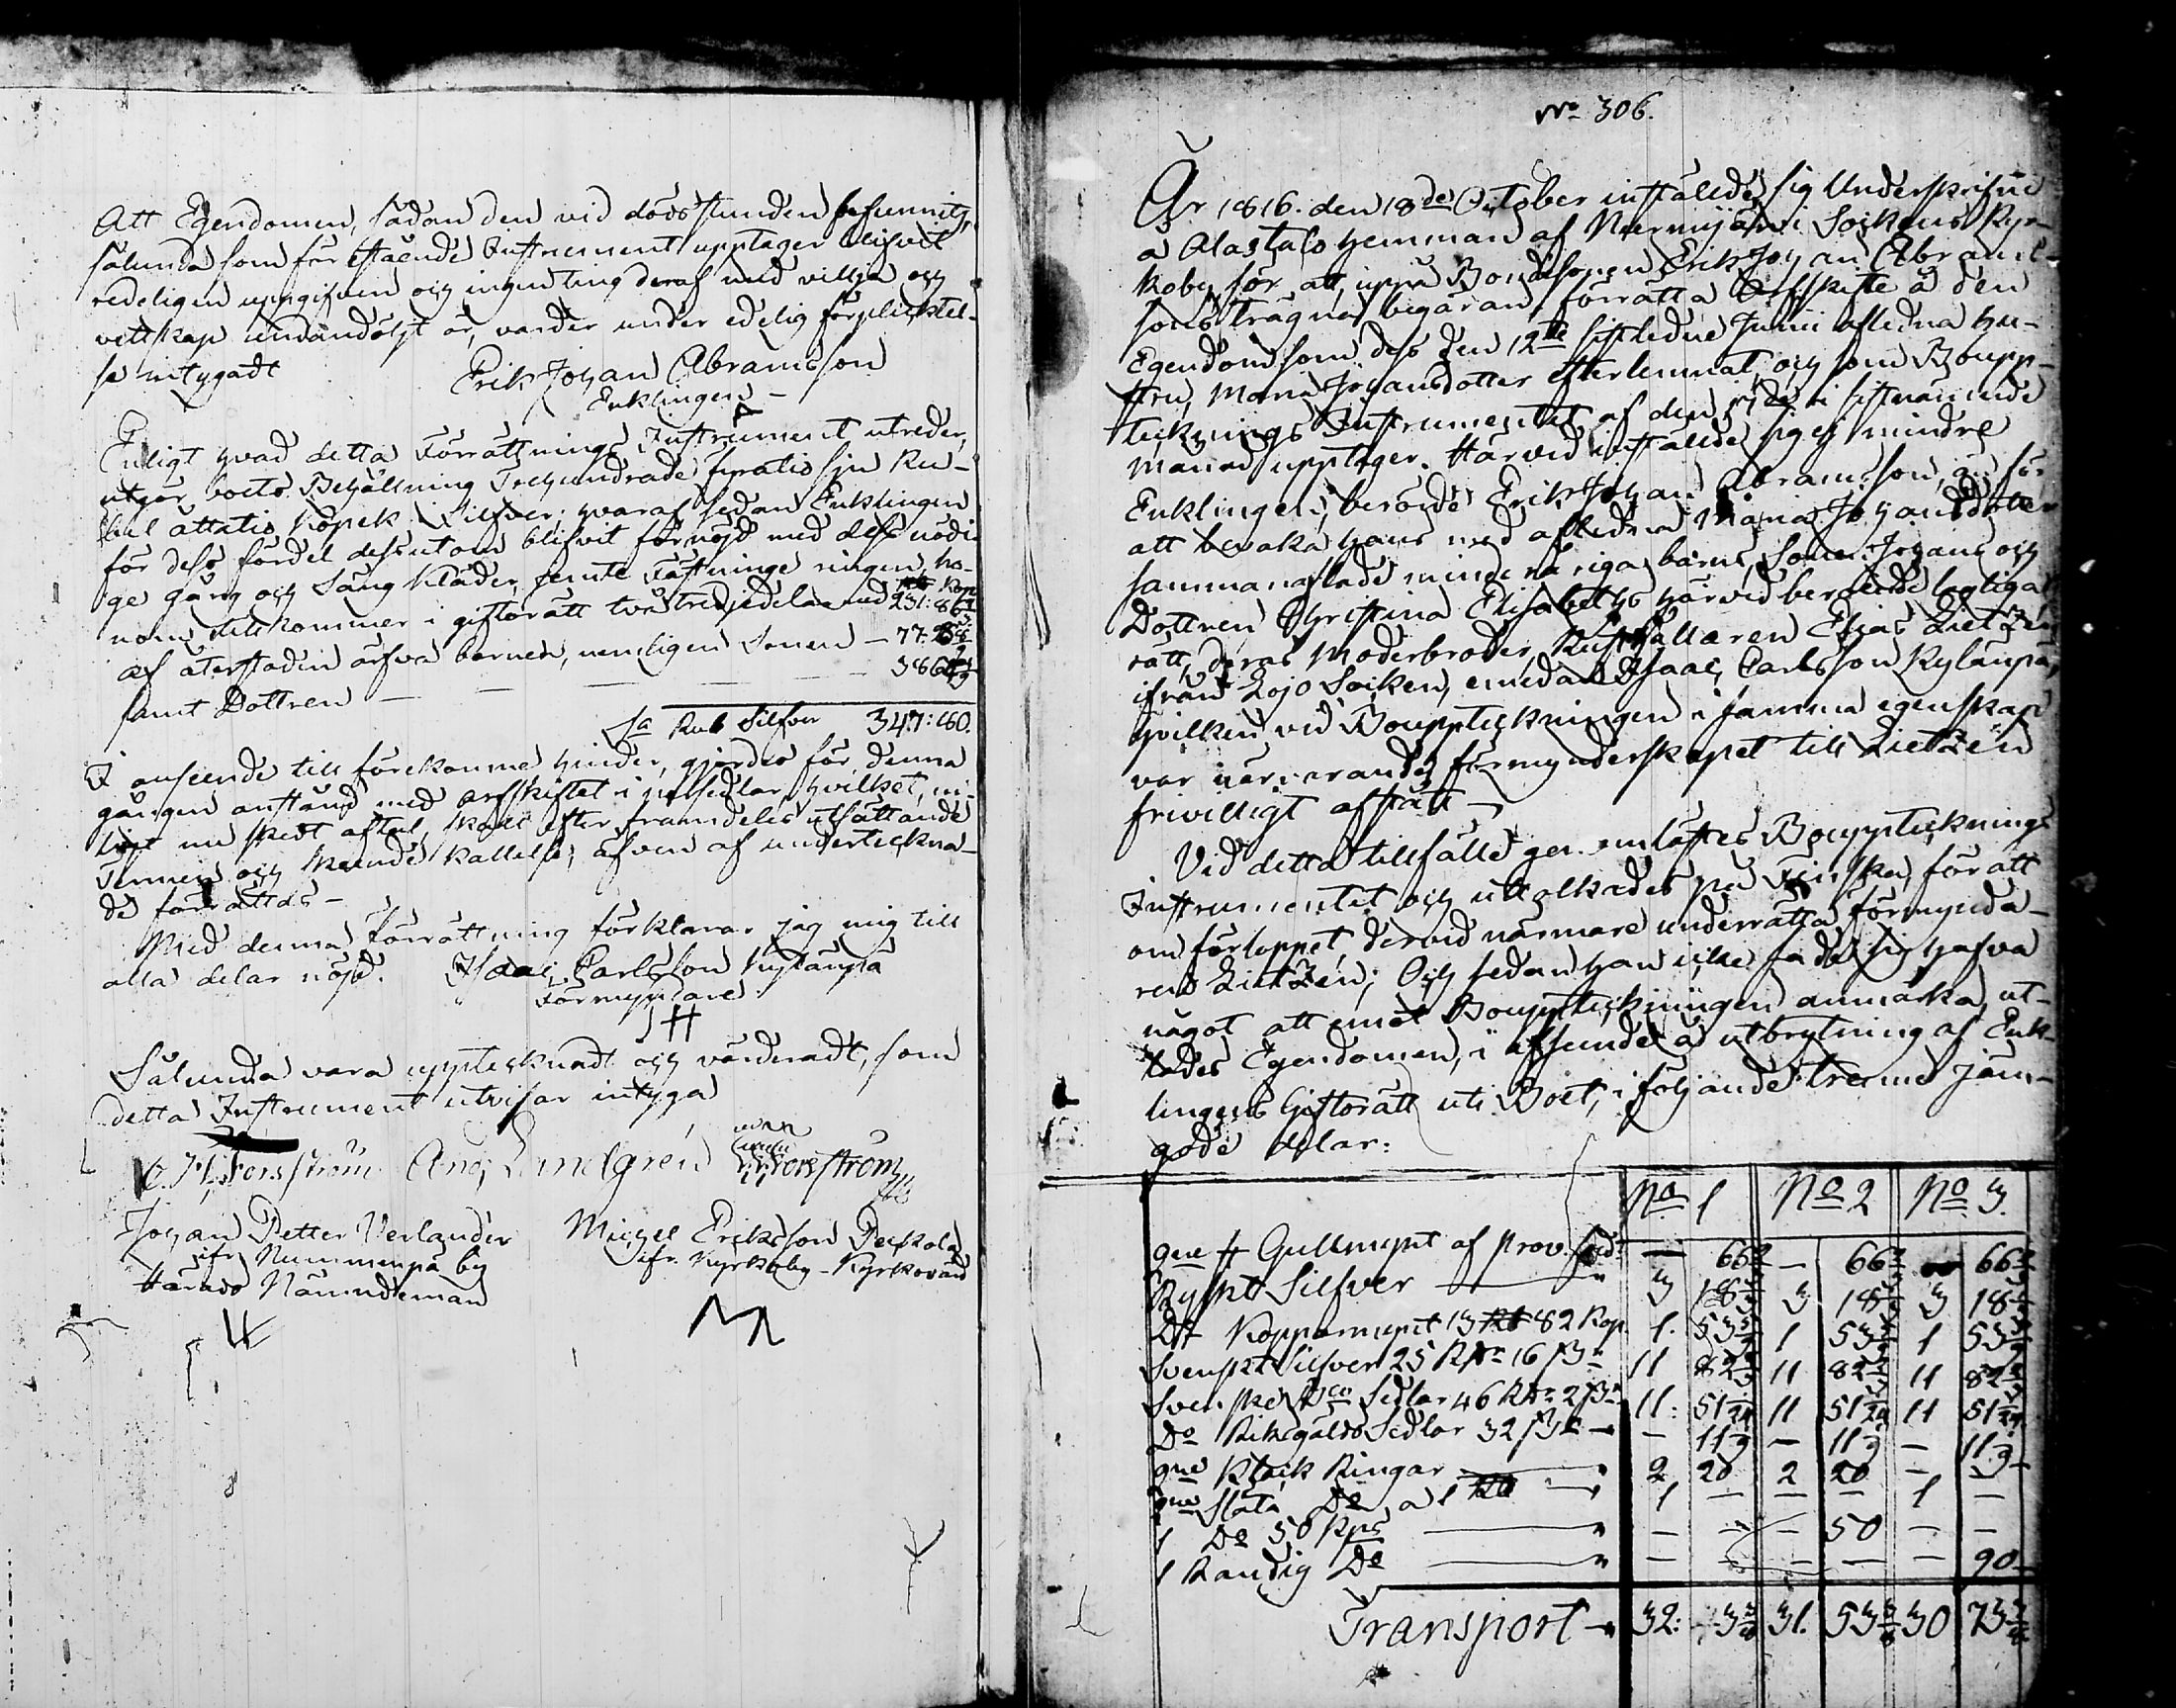 Att Egendomen, sådan den vid dödsstunden befunnits,
sålunda som förestående Instrument upptager blifvit
redeligen uppgifven och ingenting deraf med vilja och
vettskap undandölgt är, varder under edelig förplicktel-
se intygadt
Erik Johan Abramsson
Enklingen
Enligt hvad detta Förrättnings Instrument utreder,
utgör boets Behållning Trehundrade fyratio sju Ru-
bel åttatio Kopek Silfver; hvaraf sedan Enklingen
för dess fördel dessutom blifvit förnögd med dess nödi-
ge gång och Säng Kläder, jemte Fästninge ringen, ho-
nom tillkommer i giftorätt två tredjedelar med 231: 86
af återstoden ärfva barnen, nemligen Sonen – 77:
samt Dottren — — — — 38
Sa Rub Silfver 347: 80.
I anseende till förekomne hinder, gjordes för denna
gången anstånd med arfskiftet i   hvilket, en-
ligt nu skedt aftal, skall efter framdeles utsättande
Termin och skeende kallelse, äfven af underteckna-
de förrättas –
Med denna Förrättning förklarar jag mig till
alla delar nögd. Isaac Carlsson Kylänpä
Förmyndare
Sålunda vara upptecknadt och värderadt, som
detta Instrument utvisar intyga
C. H. Forsström And. Lindgren Forsström
Johan Petter Verlander Michel Eriksson Perkola
ifr. Nummenpä by ifr. Kyrkoby – Kyrkovärd
Härads Nämndeman
No 306.
År 1816. den 18de October instälde sig Underskrifne
å Alastalo hemman af Nurmijärvi Sockens Kyr-
koby för att, uppå Bondesonen Erik Johan Abrams-
sons trägna begäran, förrätta Arfskifte å den
Egendom som dess den 12te sistledne Junii afledna hu-
stru, Maria Johansdotter efterlemnat, och som Boupp-
tecknings Instrumentet af den   i sistnämnde
månad upptager. Härvid instälde sig ej mindre
Enklingen, berörde Erik Johan Abramsson, än för
att bevaka hans med afledna Maria Johansdotter
sammanaflade minderåriga barns, Sonen Johans och
Dottren Christina Elisabeths härvid beroende lagliga
rätt, deras Moderbroder, Rusthållaren Elias Lietzén
ifrån Lojo Socken, emedan Isaac Carlsson Kylänpä,
hvilken vid Bouppteckningen i samma egenskap
var närvarande, förmynderskapet till Lietzén
frivilligt afstått –
Vid detta tillfälle genomlästes Bouppteckning
Instrumentet och uttolkades på Finska, för att
om förloppet dervid närmare underrätta förmynda-
ren Lietzén; Och sedan han icke sade sig hafva
något att emot Bouppteckningen anmärka, ut-
lades Egendomen, i afseende å utbrytning af Enk-
lingens Giftorätt uti Boet, i följande trenne jäm-
gode delar:
No 1 No 2 No 3.
Gullmynt af — 66 — 66 66
Ryskt Silfver — 3 18 3 18 3 18
Do Kopparmynt 13 82 Kop. 1. 53 1 53 1 53
Svenskt Silfver 25 Rdr 16 ß 11 82 11 82 11 82
Svenske Bco Sedlar 46 Rdr 2 ß 11: 51 11 51 11 51
Do Riksgälds Sedlar 32 ß — — 11 — 11 — 11
Ringar — 2 20 2 20 — —
släta Do a 1 — 1 — — — 1 —
1 Do 50 Kps — — — — 50 — —
1 Randig Do — — — — — — 90
Transport — 32: 3 31. 53 30 73